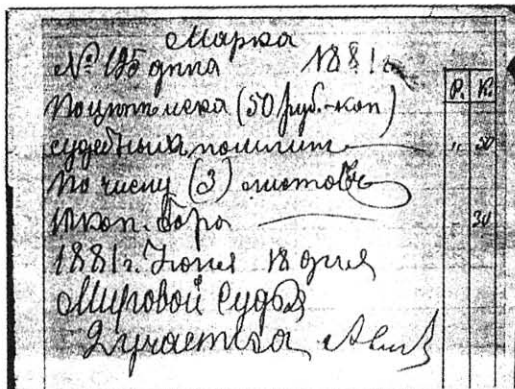 Марка
№ 195 дела 1881 г.
По цѣнѣ иска (50 руб. - коп)
судебныхъ пошлинъ
По числу (3) листовъ
10 коп. сбора
1881 г. Июня 18 дня
Мировой Судья
2 участка
Р. К.
" 50
30